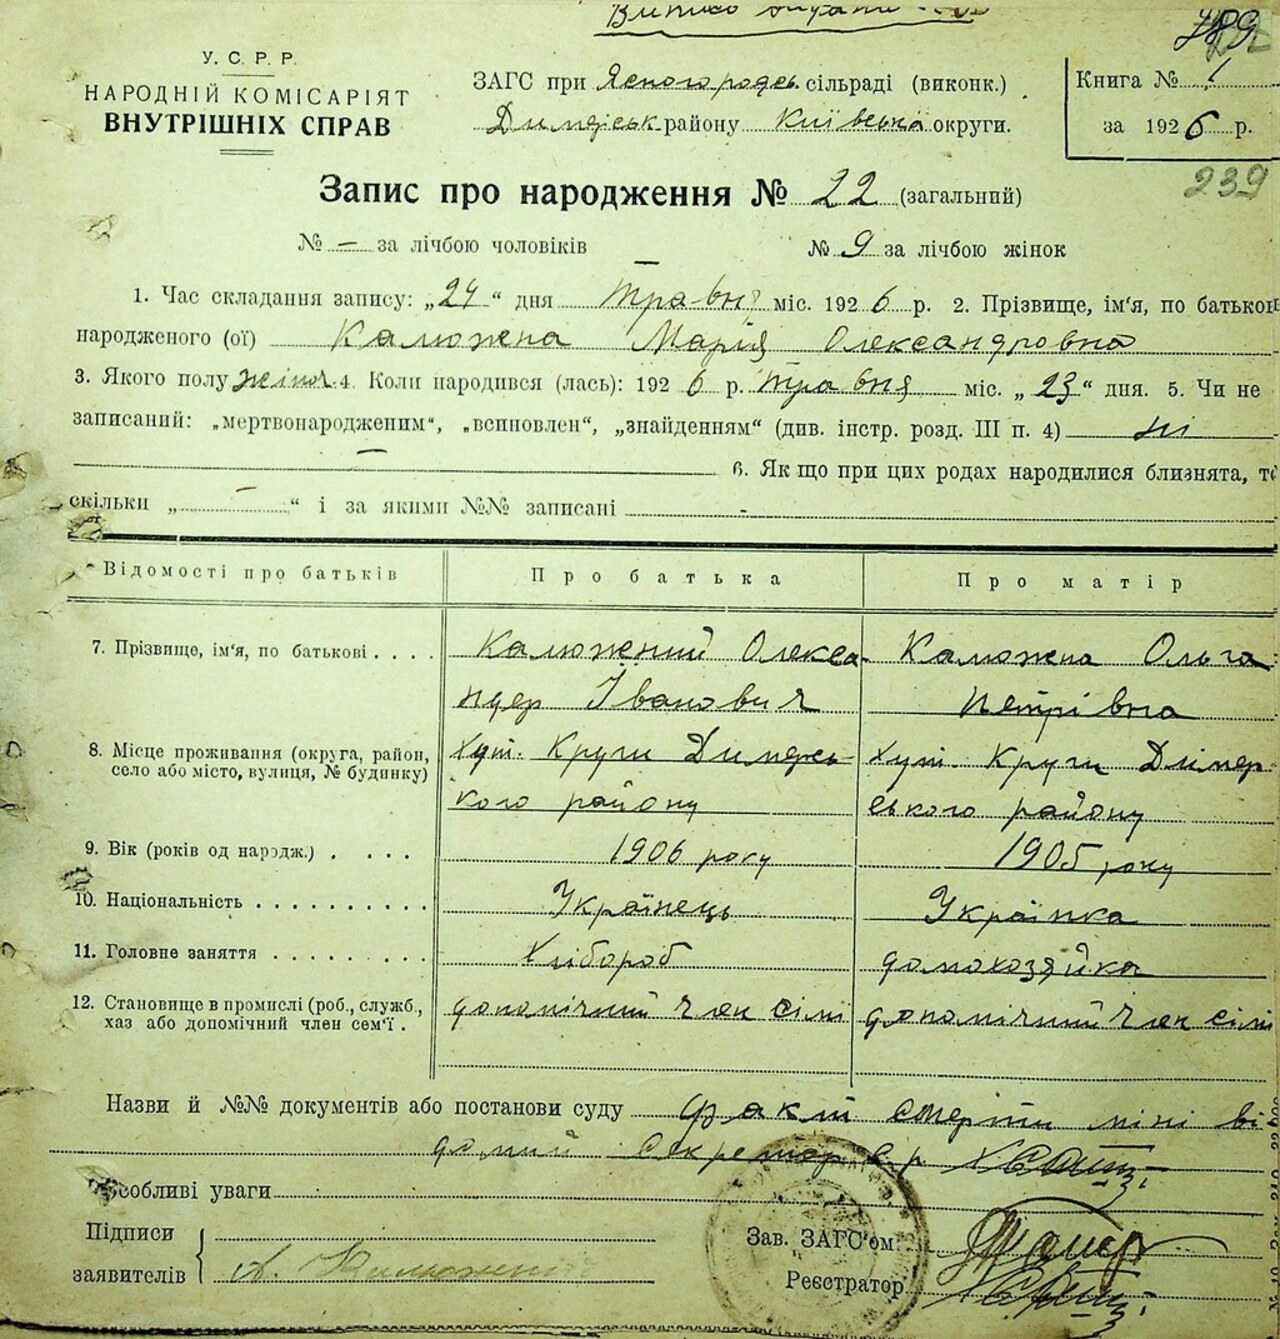 У. С. Р. Р.
НАРОДНІЙ КОМІСАРІЯТ
ВНУТРІШНІХ СПРАВ
ЗАГС при Ясногородсь. сільраді (виконк.)
Димерськ району Київська округи.
Книга № 1
за 1926 р.
239
Запис про народження № 22 (загальний)
№ – за лічбою чоловіків
№ 9 за лічбою жінок
1. Час складання запису: „24“ дня Травня міс. 1926 р. 2. Прізвище, ім'я, по батькові
народженого (ої) Калюжна Марія Олександровна
3. Якого полу жіноч. 4. Коли народився (лась): 1926 р. травня міс. „23“ дня. 5. Чи не
записаний: „мертвонародженим“, „вспиовлен“, „знайденням“ (див. інстр. розд. III п. 4) ні
6. Як що при цих родах народилися близнята, то
скільки „ – “ і за якими №№ записані -
Відомості про батьків
Про батька
Про матір
7. Прізвище, ім'я, по батькові . . . .
Калюжний Олекса-
ндер Іванович
Калюжна Ольга
Петрівна
8. Місце проживання (округа, район,
село або місто, вулиця, № будинку)
Хут. Круги Димерсь-
кого району
Хут. Круги Дімер
ського району
9. Вік (років од народж.) . . . .
1906 року
1905 року
10. Національність . . . . . . . . . .
Українець
Українка
11. Головне заняття . . . . . . . . .
Хлібороб
домохозяйка
12. Становище в промислі (роб., служб.,
хаз або допомічний член сем'ї .
допомічний член сімї
допомічний член сімї
Назви й №№ документів або постанови суду факт смерти міні ві
домий Секретар с/р
Особливі уваги
Підписи
заявителів
А. Калюжний
Зав. ЗАГС'ом
Реєстратор